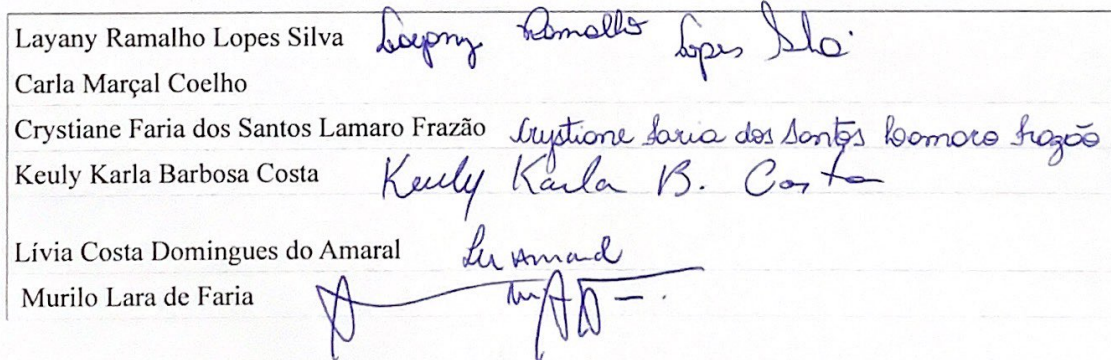 Layany Ramalho Lopes Silva Layany Ramalho Lopes Silva
Carla Marçal Coelho
Crystiane Faria dos Santos Lamaro Frazão Crystiane Faria dos Santos Lamaro Frazão
Keuly Karla Barbosa Costa Keuly Karla B. Costa
Lívia Costa Domingues do Amaral
Murilo Lara de Faria